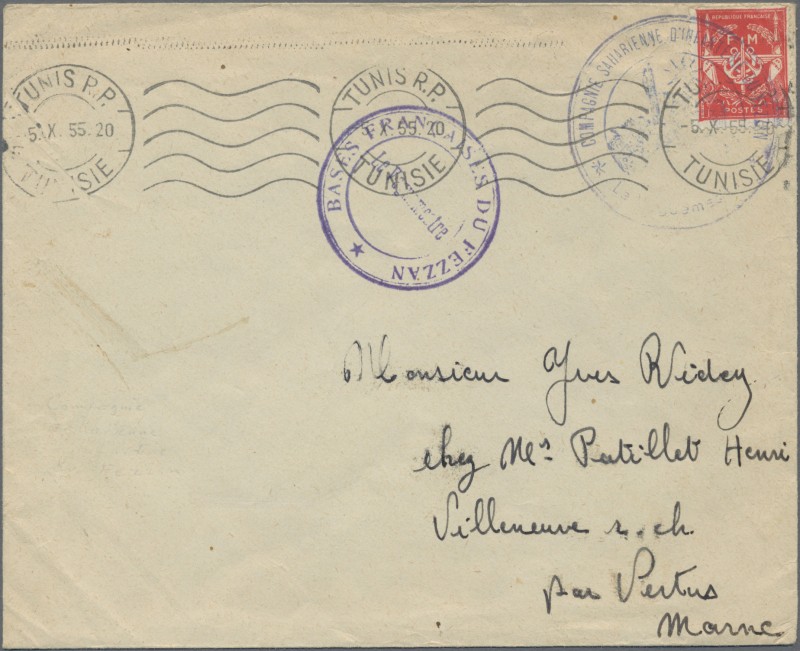 TUNIS R.P.
5.X.55.20
TUNISIE
TUNIS R.P.
5.X.55.20
TUNISIE
BASES FRANÇAISES DU FEZZAN
COMPAGNIE SAHARIENNE
REPUBLIQUE FRANÇAISE
F M
POSTES
TUNISIE
Monsieur Yves
chez Mr Patillet Henri
Villeneuve r. ch.
par Vertus
Marne
Compagnie